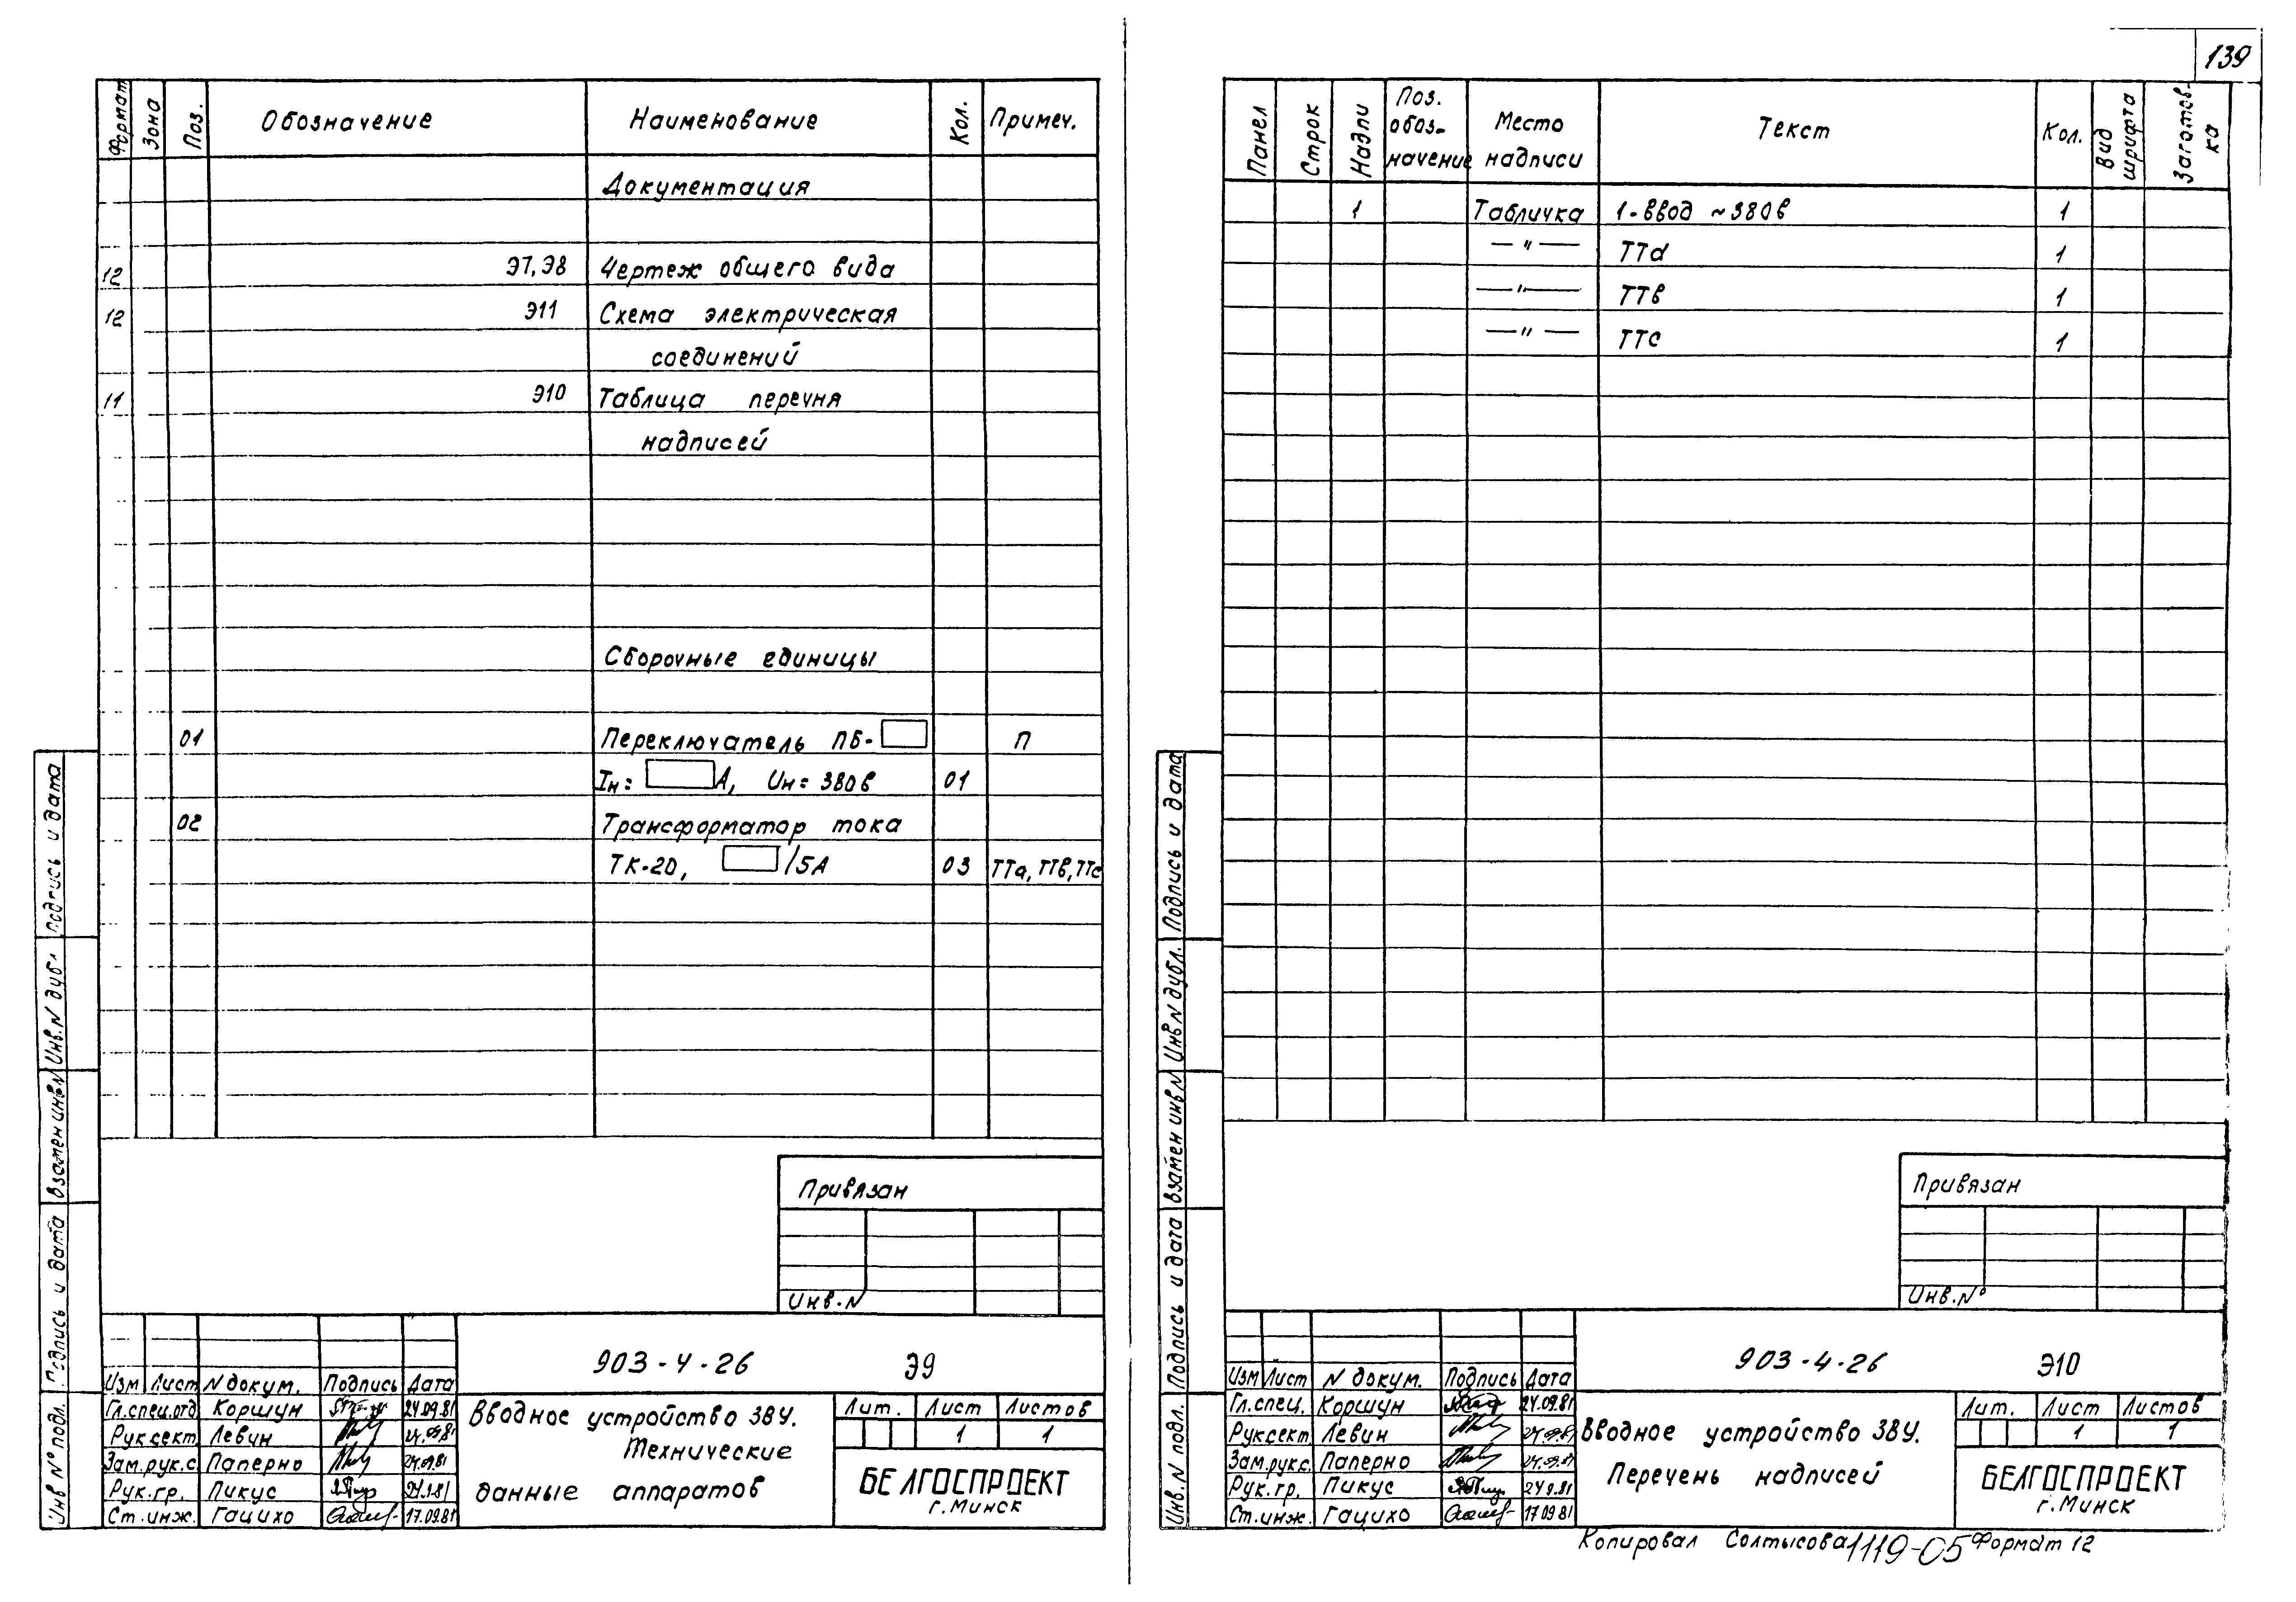 139
Формат Зона Поз. Обозначение Наименование Кол. Примеч.
Документация
12 Э7, Э8 Чертеж общего вида
12 Э11 Схема электрическая
соединений
11 Э10 Таблица перечня
надписей
Сборочные единицы
01 Переключатель ПБ- П
Iн= А, Uн= 380в 01
02 Трансформатор тока
ТК-20, /5А 03 ТТа, ТТв, ТТс
Привязан
Инв.N
903-4-26 Э9
Изм Лист N докум. Подпись Дата
Гл.спец.отд Коршун 24.09.81
Рук.сект. Левин 24.09.81
Зам.рук.с. Паперно 24.09.81
Рук.гр. Пикус 24.9.81
Ст.инж. Гацихо 17.09.81
Вводное устройство ЗВУ.
Технические
данные аппаратов
Лит. Лист Листов
1 1
БЕЛГОСПРОЕКТ
г. Минск
Инв N° подл. Подпись и дата Взамен инв.N Инв.N дубл. Подпись и дата
Панел Строк Надпи Поз. обоз- начение Место надписи Текст Кол. Вид шрифта Заготов- ка
1 Табличка 1-ввод ~380в 1
— " — ТТа 1
— " — ТТв 1
— " — ТТс 1
Привязан
Инв.N°
903-4-26 Э10
Изм Лист N докум. Подпись Дата
Гл.спец. Коршун 24.09.81
Рук.сект. Левин 24.09.81
Зам.рук.с. Паперно 24.09.81
Рук.гр. Пикус 24.9.81
Ст.инж. Гацихо 17.09.81
Вводное устройство ЗВУ.
Перечень надписей
Лит. Лист Листов
1 1
БЕЛГОСПРОЕКТ
г. Минск
Инв.N подл. Подпись и дата Взамен инв.N Инв.N дубл. Подпись и дата
Копировал Солтысова 1119-05 Формат 12